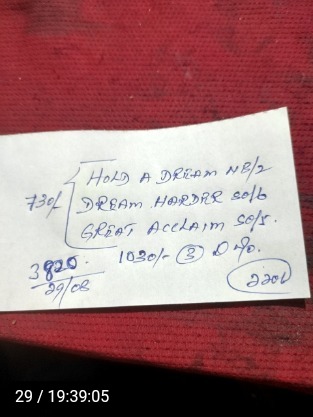 HOLD A DREAM NB/2
730/- DREAM HARDER SO/6
GREAT ACCLAIM SO/5.
1030/- ③ D
3820.
29/08
220/
29 / 19:39:05